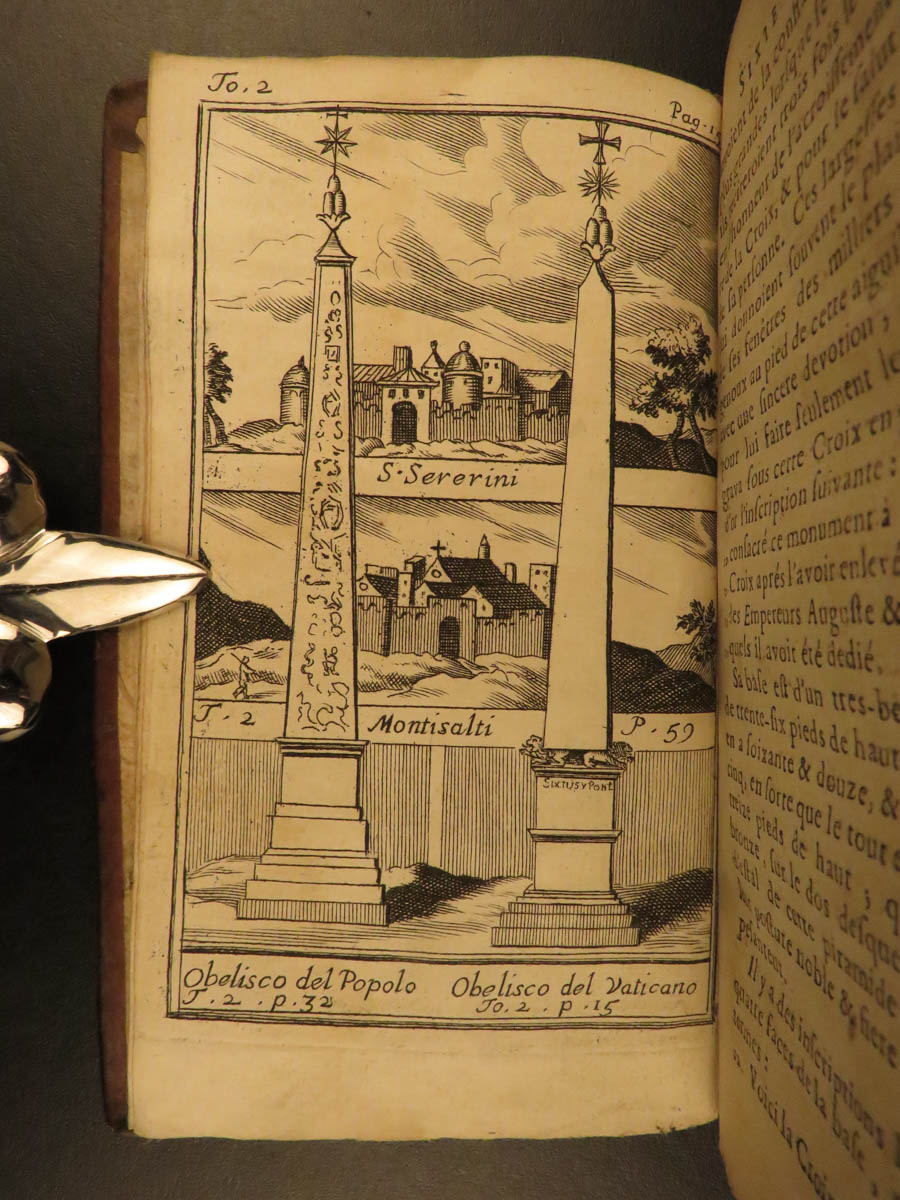 To. 2
Pag. 15
S. Sererini
T. 2 Montisalti P. 59
SIXTUS V PONT
Obelisco del Popolo Obelisco del Vaticano
T. 2 . p. 32 To. 2 . p. 15
SIXTE
oient de la contr
us grandes lorsque le
reroient trois fois le
honneur de l'acroissement
de la Croix, & pour le salut
sa personne. Ces largesses
donnoient souvent le plai
ses fenêtres des milliers
genoux au pied de cette aigui
avec une sincere devotion;
pour lui faire seulement le
grava sous cette Croix en
d'or l'inscription suivante:
consacré ce monument à
Croix aprés l'avoir enlevé
des Empereurs Auguste &
quels il avoit été dedié.
Sa base est d'un tres-be
de trente-six pieds de haut
en a soixante & douze, &
cinq, en sorte que le tout e
treize pieds de haut; q
bronze, sur le dos desque
destal de cette piramide
posture noble & fiere
Il y a des inscriptions
quatre faces de la base
termes:
Voici la Croi